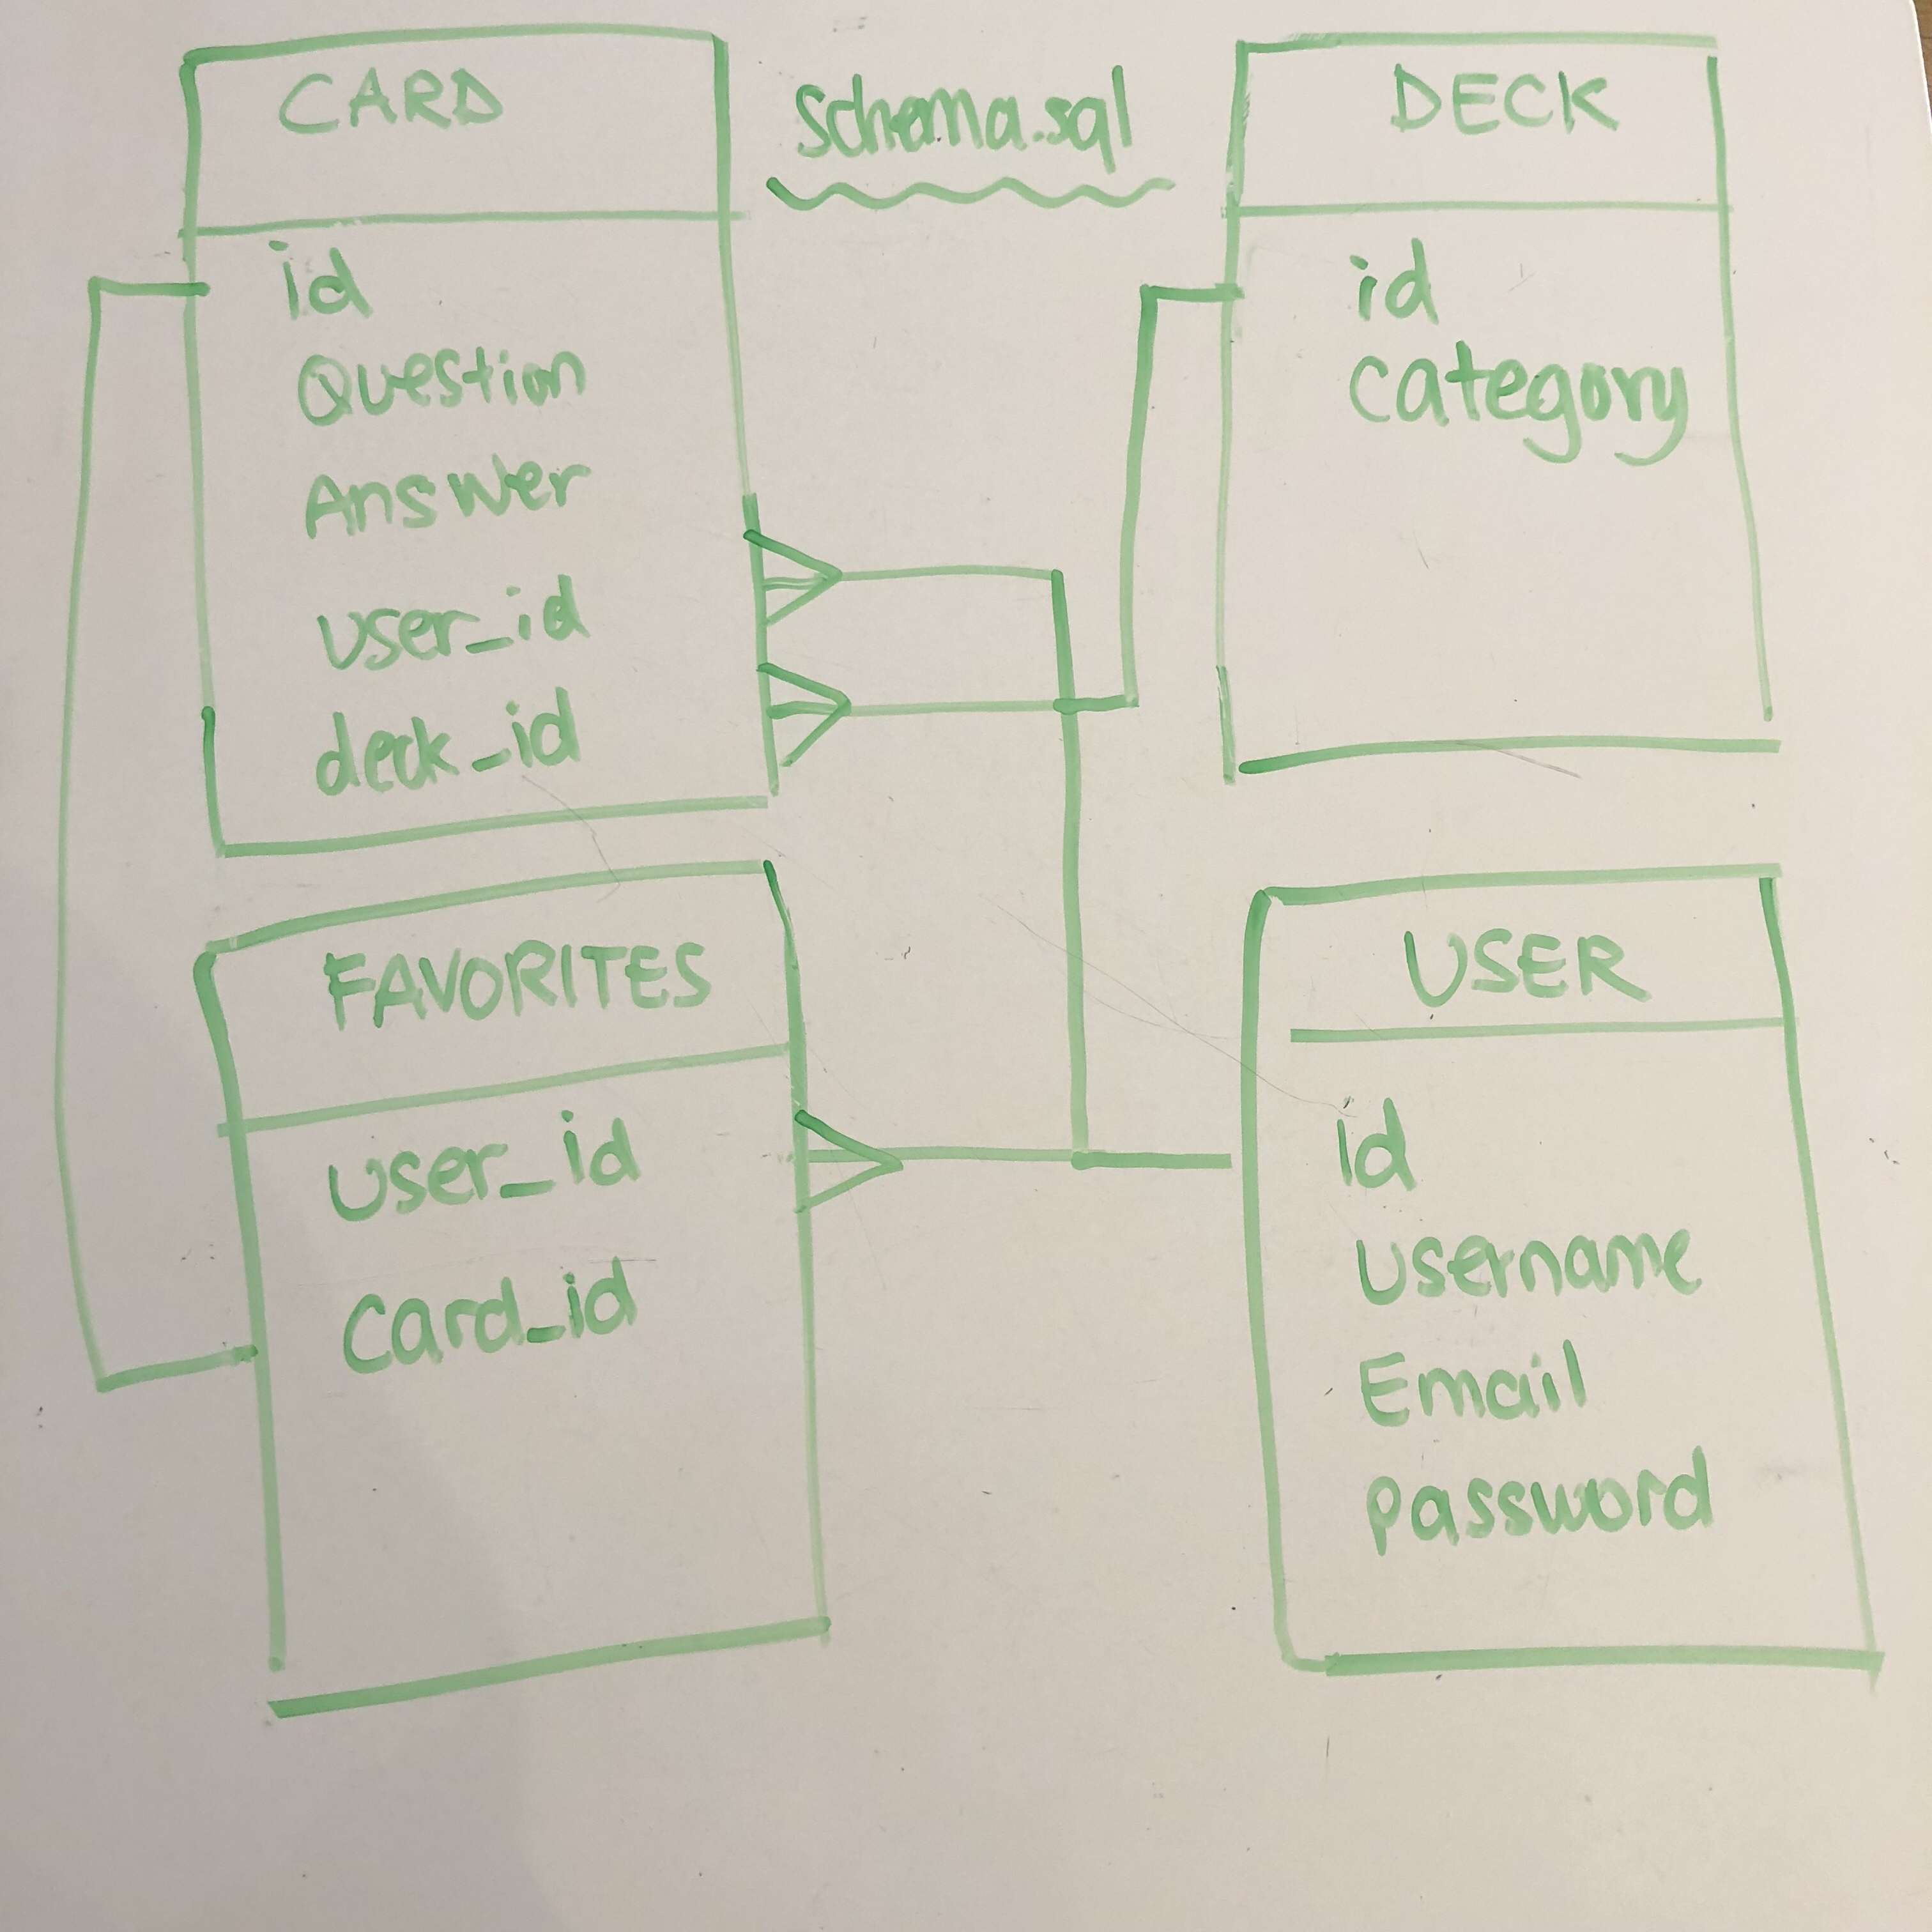 CARD
id
Question
Answer
user_id
deck_id
schema.sql
DECK
id
category
FAVORITES
user_id
Card_id
USER
id
Username
Email
password